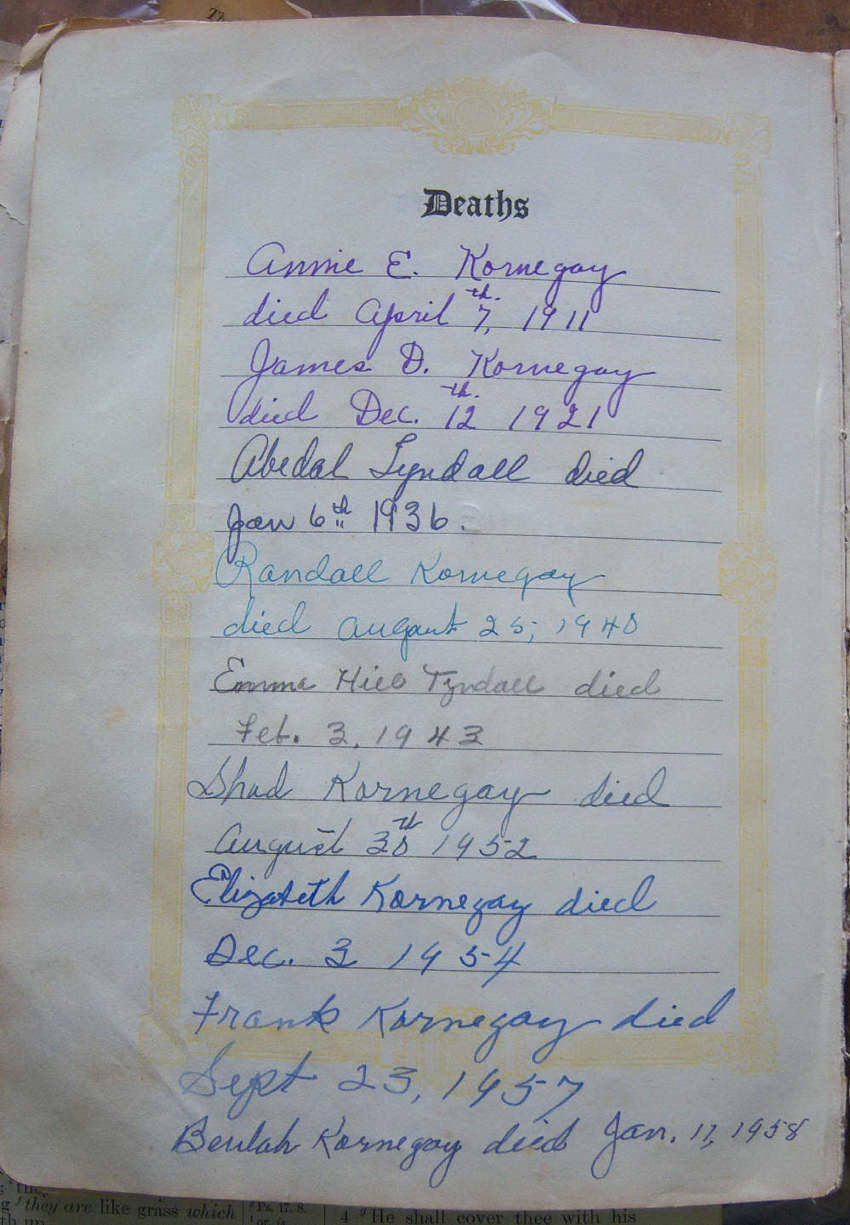 Deaths
Annie E. Kornegay
died April 7th. 1911
James D. Kornegay
died Dec. 12th. 1921
Abedal Tyndall died
Jan 6th 1936.
Randall Kornegay
died August 25, 1940
Emma Hill Tyndall died
Feb. 3, 1943
Shad Kornegay died
August 30th 1952
Elizabeth Kornegay died
Dec. 3 1954
Frank Kornegay died
Sept 23, 1957
Beulah Kornegay died Jan. 17, 1958
they are like grass which
Ps. 17. 8.
4 He shall cover thee with his